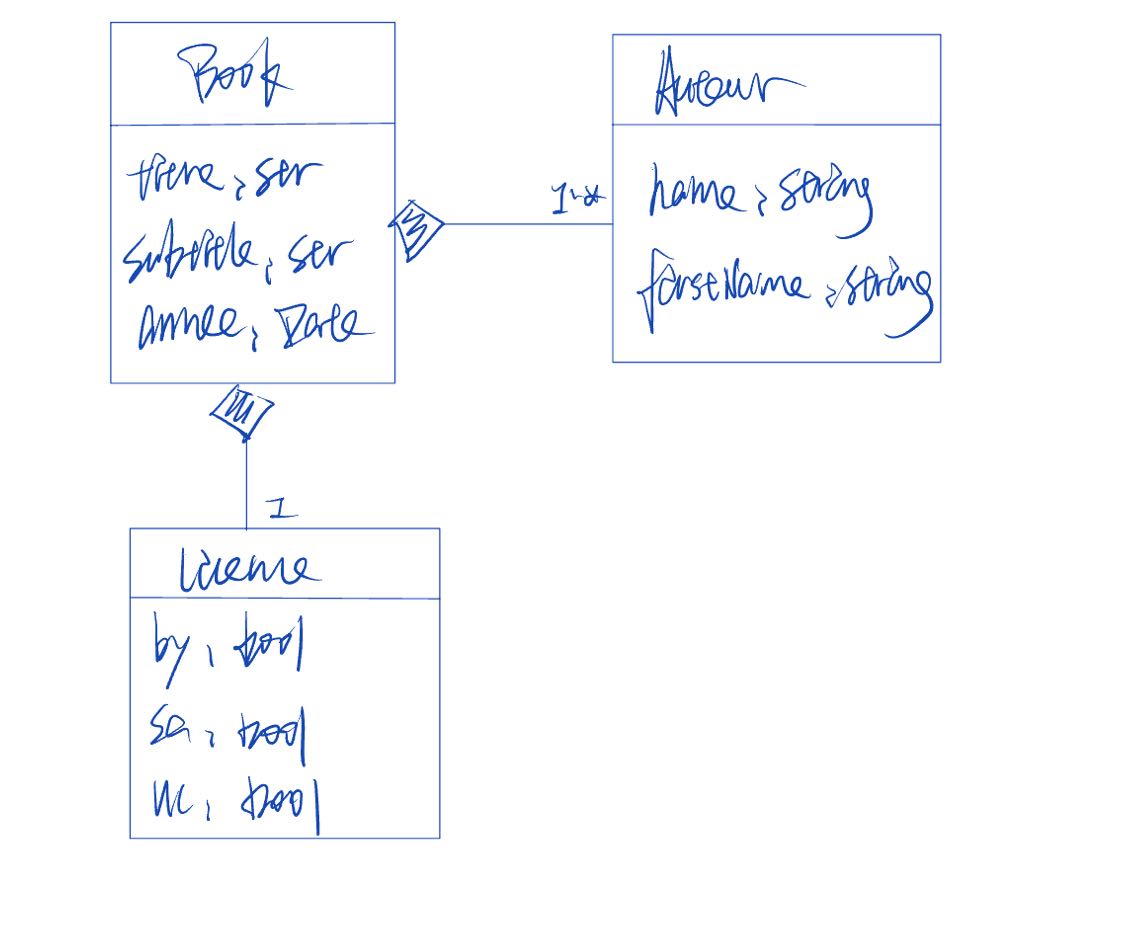 Book
titre : str
subtitle : str
annee : Date
1-*
Auteur
name : string
firstName : string
1
licence
by : bool
sa : bool
nc : bool